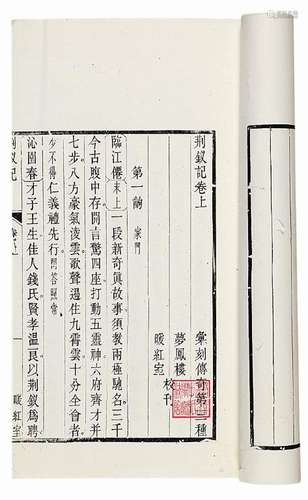 荆釵記卷上
彙刻傳奇第三種
夢鳳樓
暖紅室
校刊
第一齣 家門
臨江僊末上一段新奇真故事須教兩極馳名三千
今古腹中存開言驚四座打動五靈神六府齊才并
七步八方豪氣凌雲歌聲遏住九霄雲十分全會者
少不得仁義禮先行問答照常
沁園春才子王生佳人錢氏賢孝溫良以荆釵爲聘
荆釵記
卷上
暖紅室